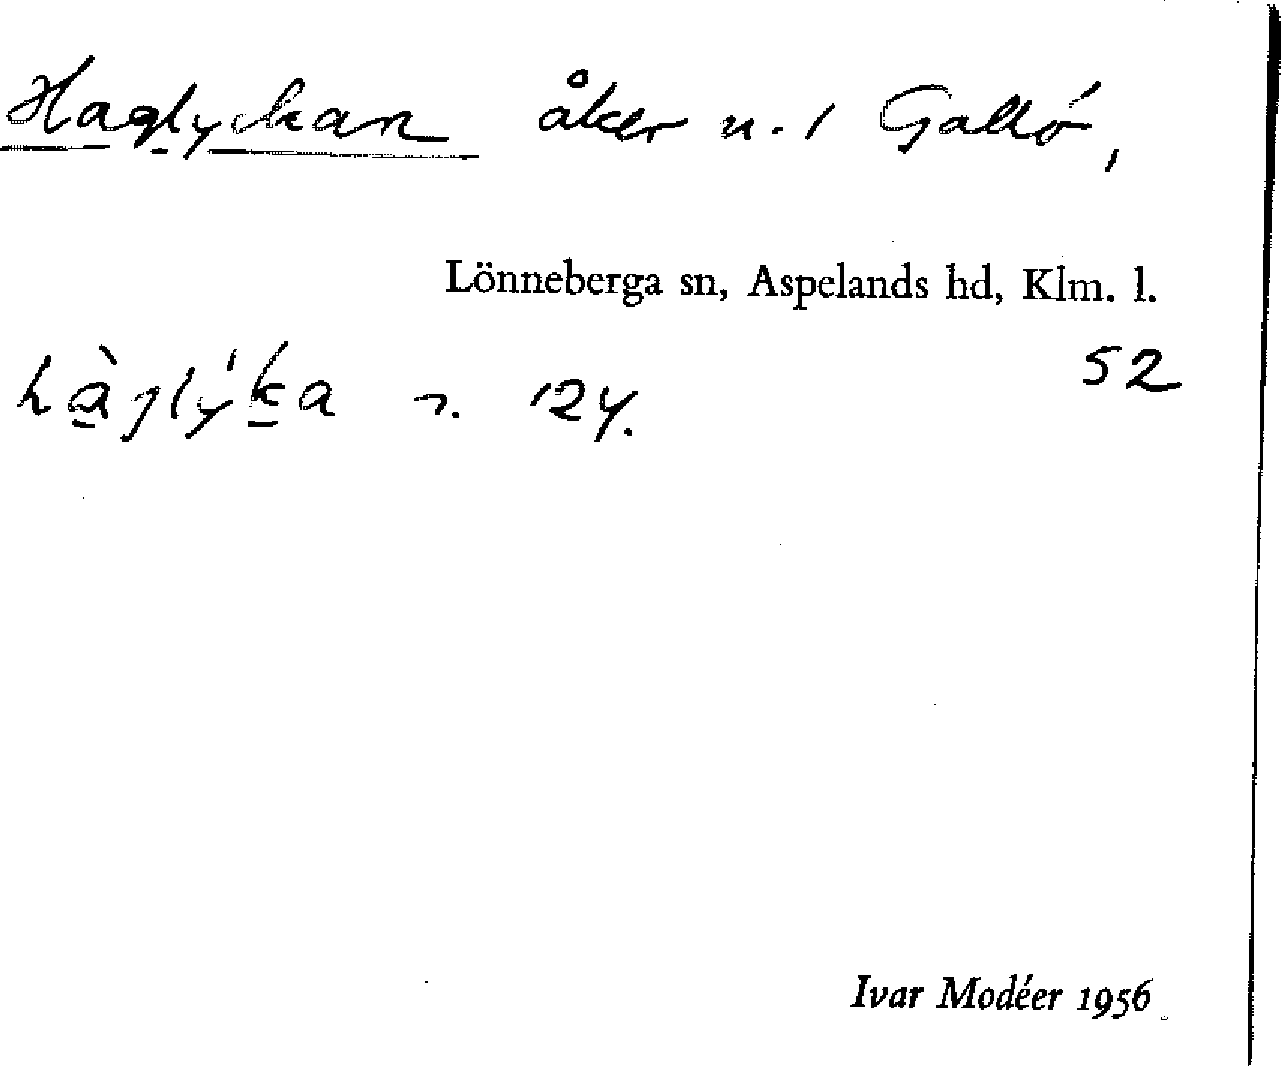 Haglyckan åker n. 1 Gallö,
Lönneberga sn, Aspelands hd, Klm. l.
52
hàglýka
Ivar Modéer 1956